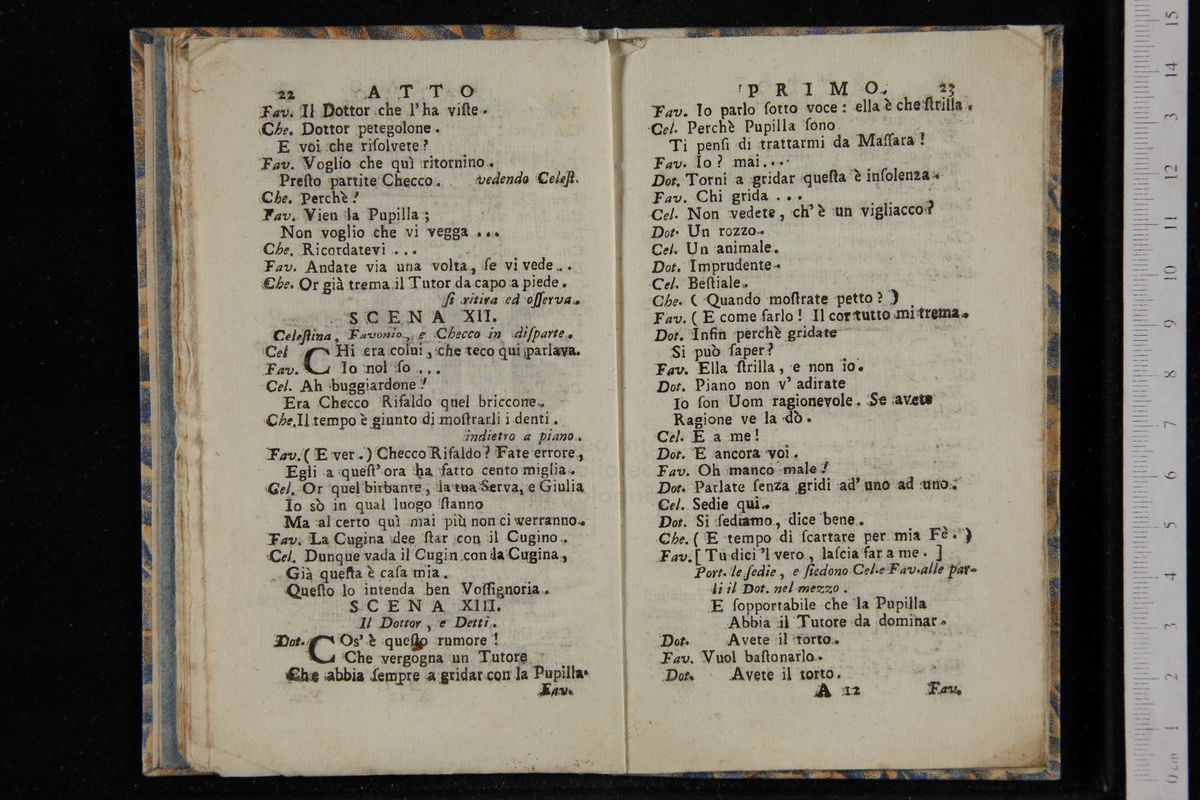 22 ATTO
Fav. Il Dottor che l'ha viste.
Che. Dottor petegolone.
E voi che riſolvete?
Fav. Voglio che quì ritornino.
Preſto partite Checco. vedendo Celeſt.
Che. Perchè?
Fav. Vien la Pupilla;
Non voglio che vi vegga ...
Che. Ricordatevi ...
Fav. Andate via una volta, ſe vi vede..
Che. Or già trema il Tutor da capo a piede.
ſi ritira ed oſſerva.
SCENA XII.
Celeſtina, Favonio, e Checco in diſparte.
Cel CHi era colui, che teco qui parlava.
Fav. Io nol ſo ...
Cel. Ah buggiardone!
Era Checco Rifaldo quel briccone.
Che. Il tempo è giunto di moſtrarli i denti.
indietro a piano.
Fav. (E ver.) Checco Rifaldo? Fate errore,
Egli a queſt'ora ha fatto cento miglia.
Cel. Or quel birbante, la tua Serva, e Giulia
Io sò in qual luogo ſtanno
Ma al certo quì mai più non ci verranno.
Fav. La Cugina dee ſtar con il Cugino.
Cel. Dunque vada il Cugin con la Cugina,
Già queſta è caſa mia.
Queſto lo intenda ben Voſſignoria.
SCENA XIII.
Il Dottor, e Detti.
Dot. COs'è queſto rumore!
Che vergogna un Tutore
Che abbia ſempre a gridar con la Pupilla.
Fav.
PRIMO. 23
Fav. Io parlo ſotto voce: ella è che ſtrilla.
Cel. Perchè Pupilla ſono
Ti penſi di trattarmi da Maſſara!
Fav. Io? mai....
Dot. Torni a gridar queſta è inſolenza.
Fav. Chi grida ...
Cel. Non vedete, ch'è un vigliacco?
Dot. Un rozzo.
Cel. Un animale.
Dot. Imprudente.
Cel. Beſtiale.
Che. (Quando moſtrate petto?)
Fav. (E come farlo! Il cor tutto mi trema.
Dot. Infin perchè gridate
Si può ſaper?
Fav. Ella ſtrilla, e non io.
Dot. Piano non v'adirate
Io ſon Uom ragionevole. Se avete
Ragione ve la dò.
Cel. E a me!
Dot. E ancora voi.
Fav. Oh manco male!
Dot. Parlate ſenza gridi ad'uno ad uno.
Cel. Sedie qui.
Dot. Si ſediamo, dice bene.
Che. (E tempo di ſcartare per mia Fè.)
Fav. [Tu dici 'l vero, laſcia far a me.]
Port. le ſedie, e ſiedono Cel. e Fav. alle par-
ti il Dot. nel mezzo.
E ſopportabile che la Pupilla
Abbia il Tutore da dominar.
Dot. Avete il torto.
Fav. Vuol baſtonarlo.
Dot. Avete il torto.
A 12 Fav.
0 cm 1 2 3 4 5 6 7 8 9 10 11 12 13 14 15